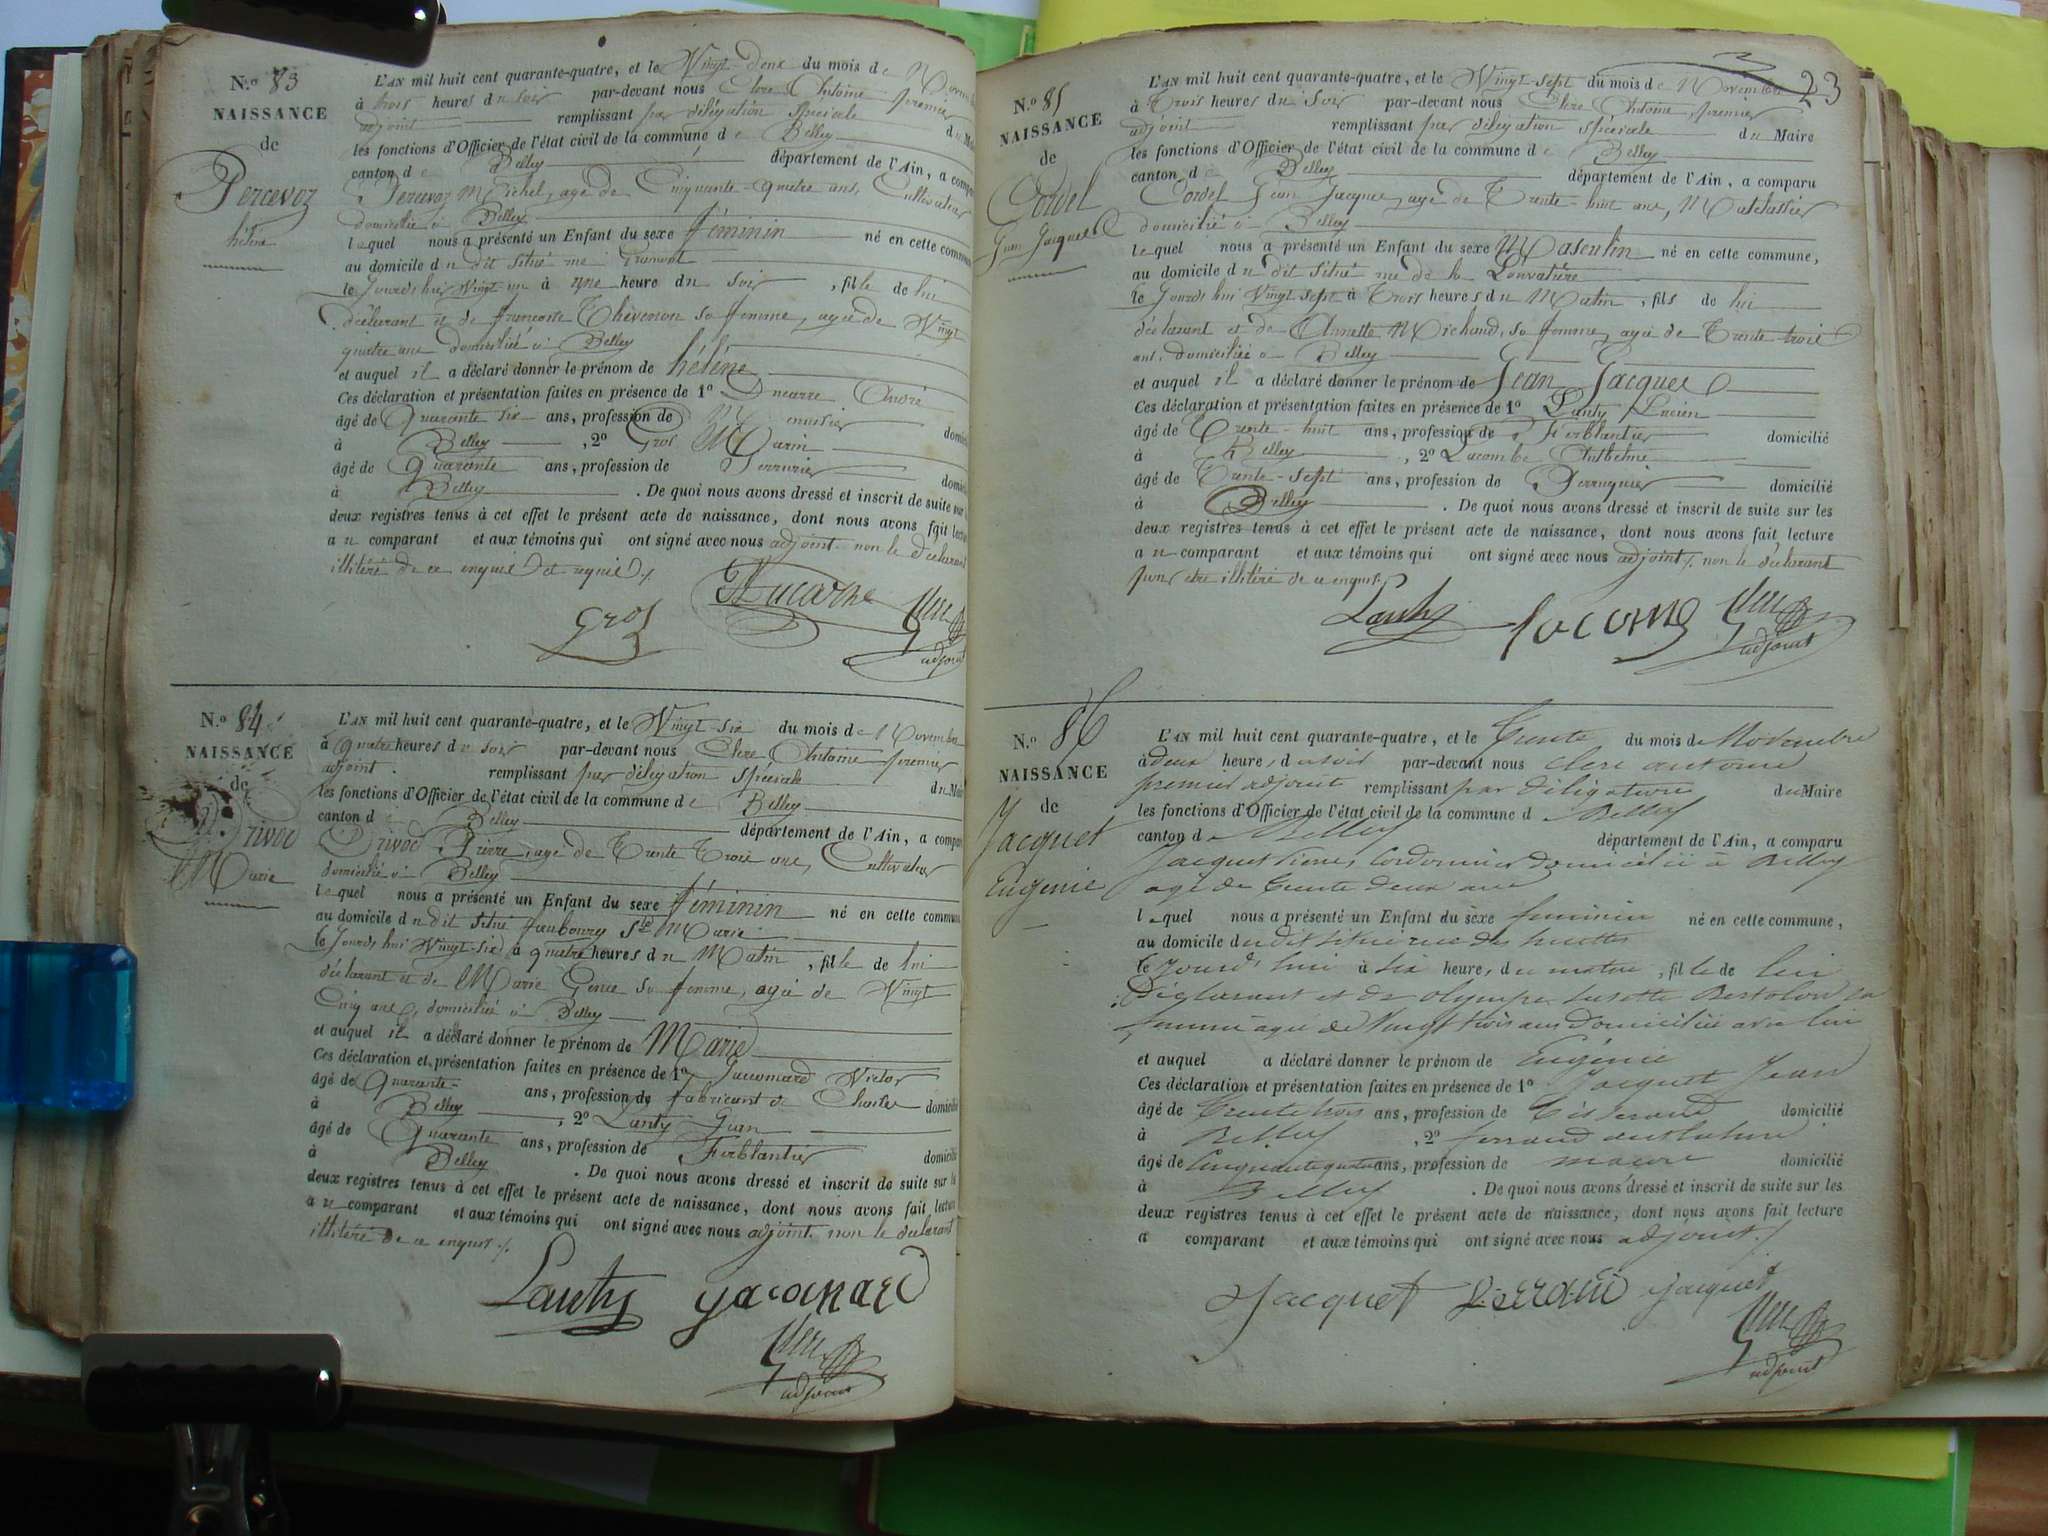 N.o 83
NAISSANCE
de
Percevoz
hélène
L'AN mil huit cent quarante-quatre, et le Vingt-deux du mois de
à trois heures du soir par-devant nous Clerc Antoine premier
adjoint remplissant par délégation spéciale du
les fonctions d'Officier de l'état civil de la commune de Belley
canton de Belley département de l'Ain, a
Percevoz Michel, agé de Cinquante-quatre ans, Cultivateur
domicilié à Belley
lequel nous a présenté un Enfant du sexe féminin né en cette
au domicile du dit situé rue
le jourd'hui Vingt un à une heure du soir, fille de lui
déclarant et de françoise Thévenon sa femme, agée de Vingt
quatre ans domiciliée à Belley
et auquel il a déclaré donner le prénom de hélène
Ces déclaration et présentation faites en présence de 1o Ducarre André
âgé de Quarante six ans, profession de Menuisier
à Belley, 2o Gros Marin
âgé de Quarante ans, profession de Serrurier
à Belley. De quoi nous avons dressé et inscrit de suite sur
deux registres tenus à cet effet le présent acte de naissance, dont nous avons fait
au comparant et aux témoins qui ont signé avec nous adjoint non le déclarant
illitéré de ce enquis et requis
Gros Clerc
adjoint
N.o 84
NAISSANCE
de
Drivod
Marie
L'AN mil huit cent quarante-quatre, et le Vingt-six du mois de Novembre
à quatre heures du soir par-devant nous Clerc Antoine premier
adjoint remplissant par délégation spéciale du Maire
les fonctions d'Officier de l'état civil de la commune de Belley
canton de Belley département de l'Ain, a
Drivod Pierre, agé de Trente Trois ans, Cultivateur
domicilié à Belley
lequel nous a présenté un Enfant du sexe féminin né en cette
au domicile du dit situé faubourg Ste Marie
le jourd'hui Vingt-six à quatre heures du Matin, fille de lui
déclarant et de Marie sa femme, agée de Vingt
Cinq ans, domiciliée à Belley
et auquel il a déclaré donner le prénom de Marie
Ces déclaration et présentation faites en présence de 1o Jaccomard Victor
âgé de Quarante ans, profession de fabricant de domicilié
à Belley, 2o Lanty Jean
âgé de Quarante ans, profession de Ferblantier
à Belley. De quoi nous avons dressé et inscrit de suite sur
deux registres tenus à cet effet le présent acte de naissance, dont nous avons fait lecture
au comparant et aux témoins qui ont signé avec nous adjoint non le déclarant
illitéré de ce enquis
Lanty Clerc
adjoint
23
N.o 85
NAISSANCE
de
Cordel
Jean Jacques
L'AN mil huit cent quarante-quatre, et le Vingt-sept du mois de Novembre
à Trois heures du soir par-devant nous Clerc Antoine premier
adjoint remplissant par délégation spéciale du Maire
les fonctions d'Officier de l'état civil de la commune de Belley
canton de Belley département de l'Ain, a comparu
Cordel Jean Jacques, agé de Trente-huit ans, Matelassier
domicilié à Belley
lequel nous a présenté un Enfant du sexe Masculin né en cette commune,
au domicile du dit situé rue de la
le jourd'hui Vingt-sept à Trois heures du Matin, fils de lui
déclarant et de Annette Michaud, sa femme, agée de Trente-trois
ans, domiciliée à Belley
et auquel il a déclaré donner le prénom de Jean Jacques
Ces déclaration et présentation faites en présence de 1o Lanty Lucien
âgé de Trente-huit ans, profession de Ferblantier domicilié
à Belley, 2o Lacombe Anthelme
âgé de Trente-sept ans, profession de Perruquier domicilié
à Belley. De quoi nous avons dressé et inscrit de suite sur les
deux registres tenus à cet effet le présent acte de naissance, dont nous avons fait lecture
au comparant et aux témoins qui ont signé avec nous adjoint, non le déclarant
pour être illitéré de ce enquis
Lanty Clerc
adjoint
N.o 86
NAISSANCE
de
Jacquet
Eugénie
L'AN mil huit cent quarante-quatre, et le Trente du mois de Novembre
à deux heure, du soir par-devant nous clerc antoine
premier adjoint remplissant par déligation du Maire
les fonctions d'Officier de l'état civil de la commune de Belley
canton de Belley département de l'Ain, a comparu
Jacquet Pierre, Cordonnier domicilié à Belley
agé de Trente deux ans
lequel nous a présenté un Enfant du sexe féminin né en cette commune,
au domicile du dit situé rue des
le jourd'hui à six heure, du matin, fille de lui
déclarant et de olympe Bertolon sa
femme agée de Vingt trois ans domiciliée avec lui
et auquel a déclaré donner le prénom de Eugénie
Ces déclaration et présentation faites en présence de 1o Jacquet Jean
âgé de Trente trois ans, profession de Tisserand domicilié
à Belley, 2o ferrand anthelme
âgé de Cinquante quatre ans, profession de domicilié
à Belley. De quoi nous avons dressé et inscrit de suite sur les
deux registres tenus à cet effet le présent acte de naissance, dont nous avons fait lecture
a comparant et aux témoins qui ont signé avec nous adjoint
Jacquet Jacquet
Clerc
adjoint